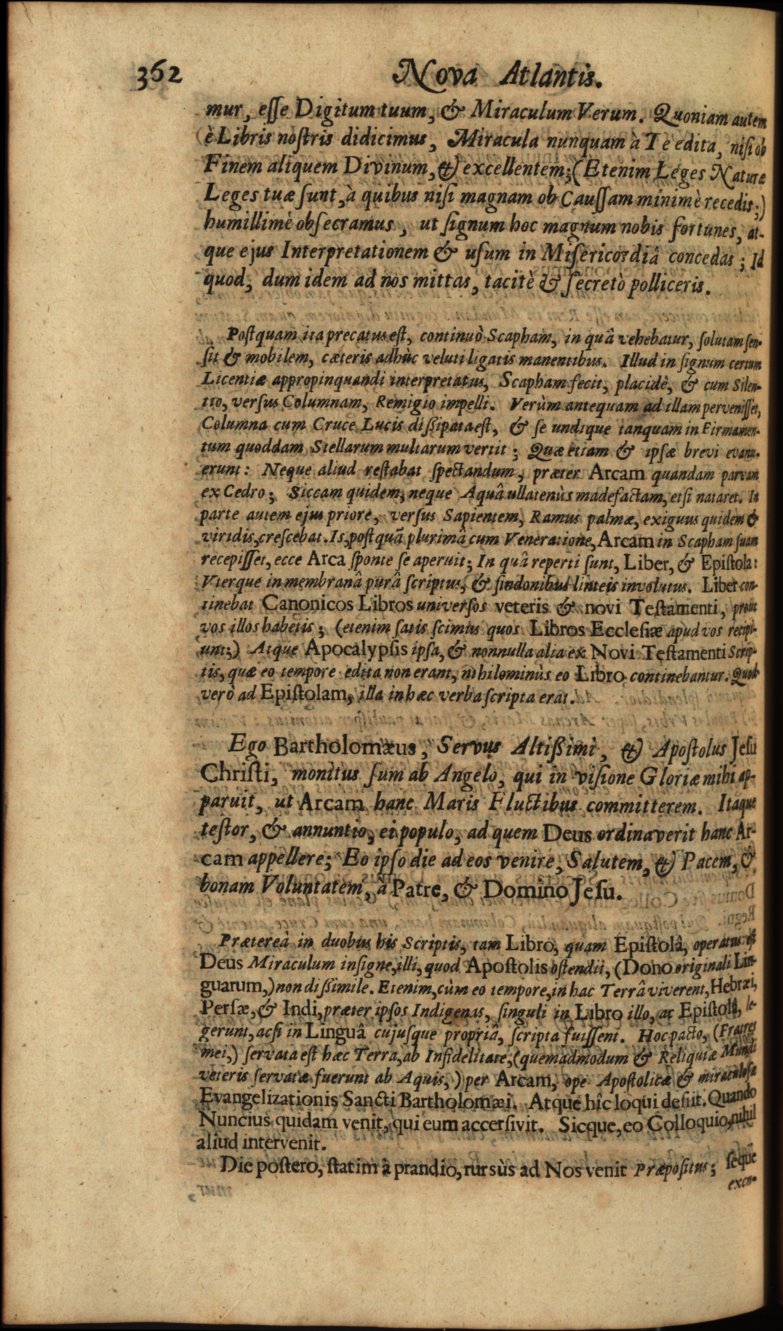 362 Nova Atlantis.
mur, esse Digitum tuum, & Miraculum Verum. Quoniam autem
è Libris nostris didicimus, Miracula nunquam à Te edita, nisi ob
Finem aliquem Divinum, & excellentem; (Etenim Leges Naturæ
Leges tuæ sunt, à quibus nisi magnam ob Caussam minimè recedis;)
humillimè obsecramus, ut signum hoc magnum nobis fortunes, at-
que ejus Interpretationem & usum in Misericordiâ concedas; Id
quod, dum idem ad nos mittas, tacitè & secretò polliceris.
Postquam ita precatus est, continuò Scapham, in quâ vehebatur, solutam sen-
sit & mobilem, cæteris adhùc veluti ligatis manentibus. Illud in signum certum
Licentiæ appropinquandi interpretatus, Scapham fecit, placidè, & cum Silen-
tio, versus Columnam, Remigio impelli. Verùm antequam ad illam pervenisset,
Columna cum Cruce Lucis dissipata est, & se undique tanquam in Firmamen-
tum quoddam Stellarum multarum vertit; Quæ etiam & ipsæ brevi evanu-
erunt: Neque aliud restabat spectandum, præter Arcam quandam parvam
ex Cedro; Siccam quidem, neque Aquâ ullatenùs madefactam, etsi nataret. In
parte autem ejus priore, versus Sapientem, Ramus palmæ, exiguus quidem &
viridis, crescebat. Is, postquã plurimâ cum Veneratione, Arcam in Scapham suam
recepisset, ecce Arca sponte se aperuit; In quâ reperti sunt, Liber, & Epistola:
Vterque in membranâ purâ scriptus, & sindonibus linteis involutus. Liber con-
tinebat Canonicos Libros universos veteris & novi Testamenti, prout
vos illos habetis; (etenim satis scimus quos Libros Ecclesiæ apud vos recipi-
unt;) Atque Apocalypsis ipsa, & nonnulla alia ex Novi Testamenti Scrip-
tis, quæ eo tempore edita non erant, nihilominùs eo Libro continebantur. Quod
verò ad Epistolam, illa in hæc verba scripta erat.
Ego Bartholomæus, Servus Altissimi, & Apostolus Jesu
Christi, monitus sum ab Angelo, qui in visione Gloriæ mihi ap-
paruit, ut Arcam hanc Maris Fluctibus committerem. Itaque
testor, & annuntio, ei populo, ad quem Deus ordinaverit hanc Ar-
cam appellere; Eo ipso die ad eos venire, Salutem, & Pacem, &
bonam Voluntatem, à Patre, & Domino Jesu.
Prætereà in duobus his Scriptis, tam Libro, quam Epistolâ, operatus est
Deus Miraculum insigne, illi, quod Apostolis ostendit, (Dono originali Lin-
guarum,) non dissimile. Etenim, cùm eo tempore, in hac Terrâ viverent, Hebræi,
Persæ, & Indi, præter ipsos Indigenas, singuli in Libro illo, ac Epistolâ, le-
gerunt, acsi in Linguâ cujusque propriâ, scripta fuissent. Hoc pacto, (Fratres
mei,) servata est hæc Terra, ab Infidelitate, (quemadmodum & Reliquiæ Mundi
veteris servatæ fuerunt ab Aquis,) per Arcam, ope Apostolicæ & miraculosæ
Evangelizationis Sancti Bartholomæi. Atque hîc loqui desiit. Quando
Nuncius quidam venit, qui eum accersivit. Sicque, eo Colloquio, nihil
aliud intervenit.
Die postero, statim à prandio, rursùs ad Nos venit Præpositus; seque
excu-